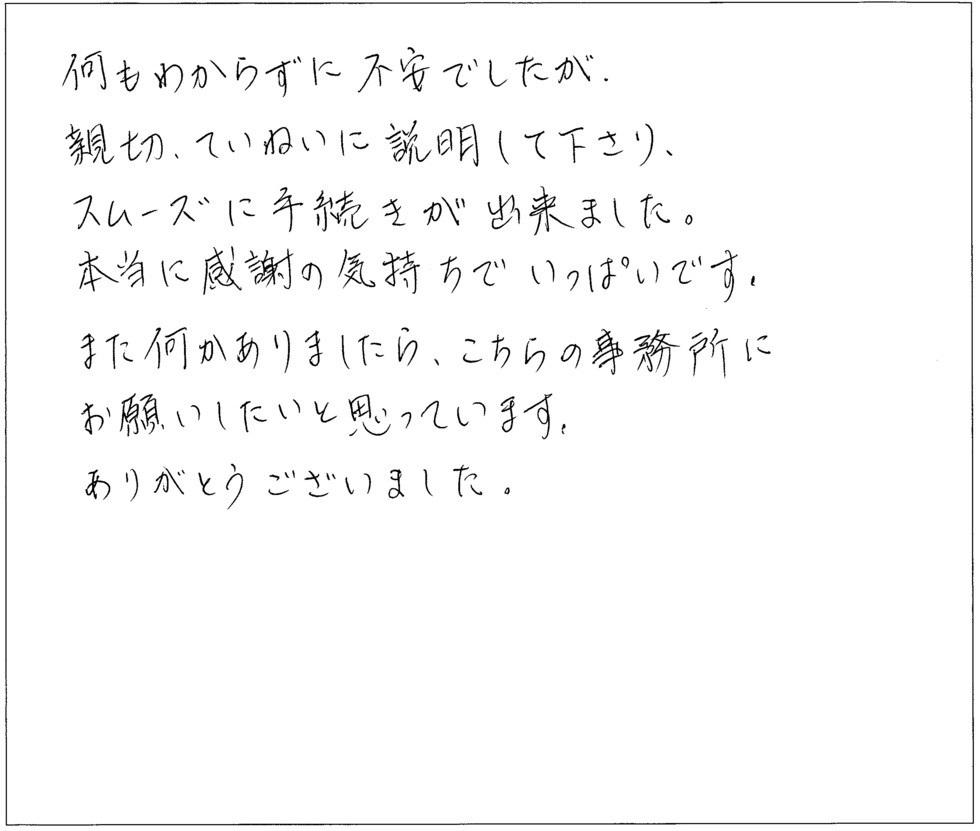 何もわからずに不安でしたが、
親切、ていねいに説明して下さり、
スムーズに手続きが出来ました。
本当に感謝の気持ちでいっぱいです。
また何かありましたら、こちらの事務所に
お願いしたいと思っています。
ありがとうございました。